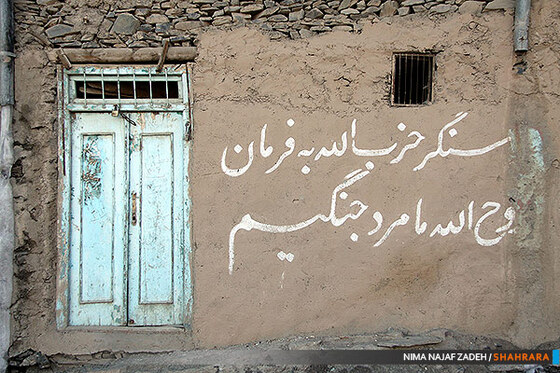 سنگر حزب الله به فرمان
روح الله ما مرد جنگیم
NIMA NAJAF ZADEH / SHAHRARA